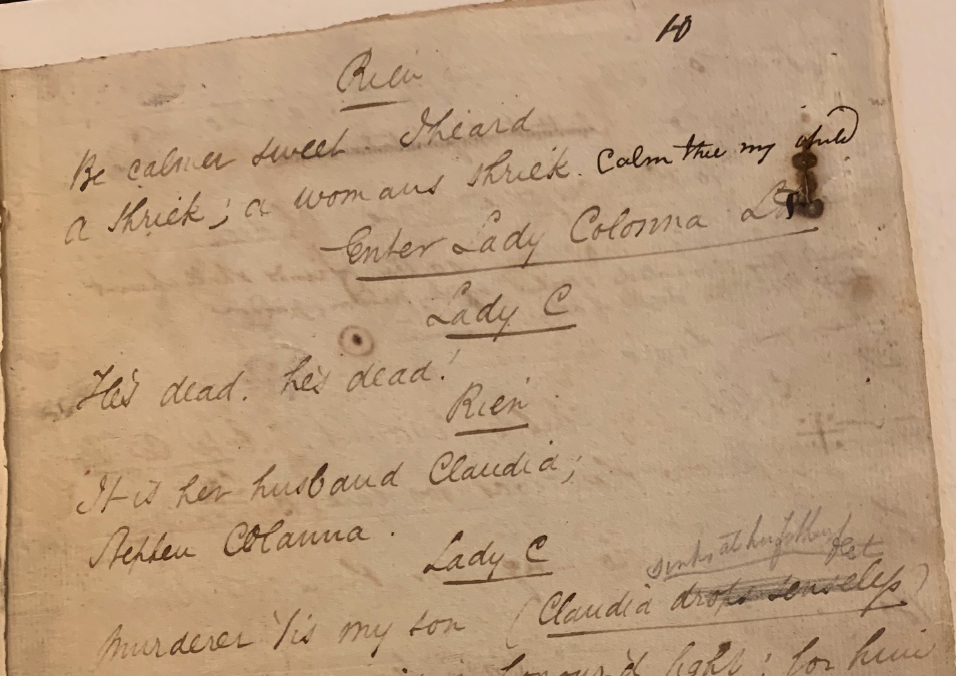 10
Rien
Be calmer sweet. I heard
a shriek; a womans shriek. Calm thee my child
Enter Lady Colonna
Lady C
He's dead. he's dead!
Rien
It is her husband Claudia;
Stephen Colanna.
Lady C
sinks at her father's feet
Murderer 'tis my son (Claudia drops senseless)
honour'd fight; for him